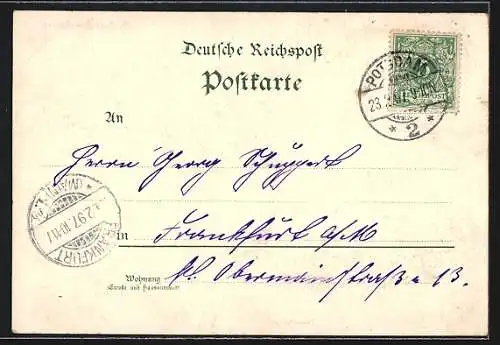 Deutsche Reichspost
Postkarte
POTSDAM
23.
9-10N
* 2 *
An
Herrn Georg Schuppert
in Frankfurt a/M
FRANKFURT
(MAIN)
2.97.
Wohnung
(Straße und Hausnummer)
kl. Obermainstraße 13.